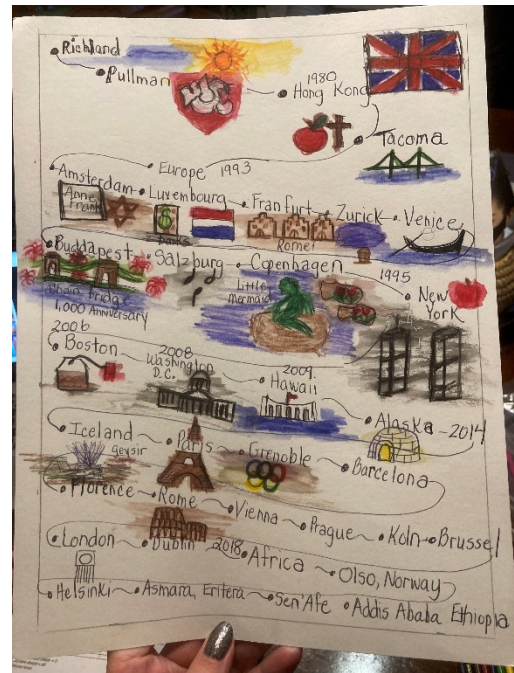 Richland
Pullman
WSU
1980
Hong Kong
Tacoma
Europe 1993
Amsterdam
Luxembourg
Franfurt
Zurick
Venice
Anne
Frank
$
banks
Romer
Buddapest
Salzburg
Copenhagen
1995
New
York
Chain bridge
1,000 Anniversary
Little
mermaid
2006
Boston
2008
Washington
D.C.
2009
Hawaii
Alaska - 2014
Iceland
geysir
Paris
Grenoble
Barcelona
Florence
Rome
Vienna
Prague
Koln
Brussel
London
Dublin
2018
Africa
Olso, Norway
Helsinki
Asmara, Eritera
Sen'Afe
Addis Ababa Ethiopia